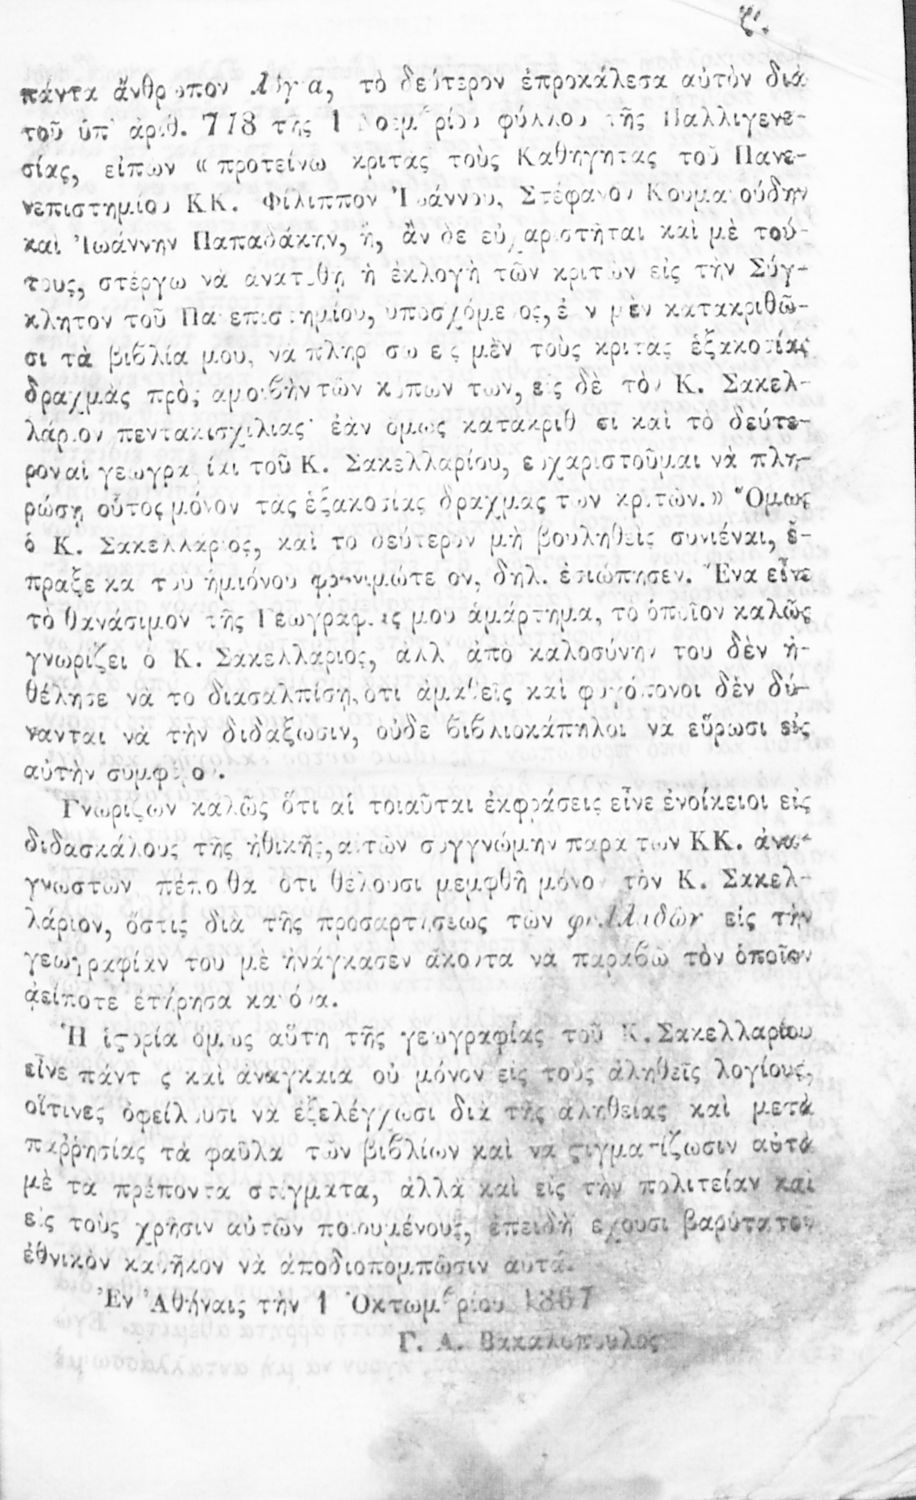 ζ′.
πάντα ἄνθρωπον λόγια, τὸ δεύτερον ἐπροκάλεσα αὐτὸν διὰ
τοῦ ὑπ' ἀριθ. 778 τῆς 1 Νοεμβρίου φύλλου τῆς Παλλιγενε-
σίας, εἰπὼν « προτείνω κριτὰς τοὺς Καθηγητὰς τοῦ Πανε-
νεπιστημίου ΚΚ. Φίλιππον Ἰωάννου, Στέφανον Κουμανούδην
καὶ Ἰωάννην Παπαδάκην, ἤ, ἂν δὲ εὐχαριστῆται καὶ μὲ τού-
τους, στέργω νὰ ἀνατεθῇ ἡ ἐκλογὴ τῶν κριτῶν εἰς τὴν Σύγ-
κλητον τοῦ Πανεπιστημίου, ὑποσχόμενος, ἐὰν μὲν κατακριθῶ-
σι τὰ βιβλία μου, νὰ πληρώσω εἰς μὲν τοὺς κριτὰς ἑξακοσίας
δραχμὰς πρὸς ἀμοιβὴν τῶν κόπων των, εἰς δὲ τὸν Κ. Σακελ-
λάριον πεντακισχιλίας· ἐὰν ὅμως κατακριθῶσι καὶ τὸ δεύτε-
ρον αἱ γεωγραφίαι τοῦ Κ. Σακελλαρίου, εὐχαριστοῦμαι νὰ πλη-
ρώσῃ οὗτος μόνον τὰς ἑξακοσίας δραχμὰς τῶν κριτῶν.» Ὅμως
ὁ Κ. Σακελλάριος, καὶ τὸ δεύτερον μὴ βουληθεὶς συνιέναι, ἔ-
πραξε καὶ τοῦ ἡμιόνου φρονιμώτερον, δηλ. ἐσιώπησεν. Ἕνα εἶνε
τὸ θανάσιμον τῆς Γεωγραφίας μου ἁμάρτημα, τὸ ὁποῖον καλῶς
γνωρίζει ὁ Κ. Σακελλάριος, ἀλλ' ἀπὸ καλοσύνην του δὲν ἠ-
θέλησε νὰ τὸ διασαλπίσῃ, ὅτι ἀμαθεῖς καὶ φυγόπονοι δὲν δύ-
νανται νὰ τὴν διδάξωσιν, οὐδὲ βιβλιοκάπηλοι νὰ εὕρωσι εἰς
αὐτὴν συμφέρον.
Γνωρίζων καλῶς ὅτι αἱ τοιαῦται ἐκφράσεις εἶνε ἐνοίκειοι εἰς
διδασκάλους τῆς ἠθικῆς, αἰτῶν συγγνώμην παρὰ τῶν ΚΚ. ἀνα-
γνωστῶν πέποιθα ὅτι θέλουσι μεμφθῆ μόνον τὸν Κ. Σακελ-
λάριον, ὅστις διὰ τῆς προσαρτήσεως τῶν φυλλαδῶν εἰς τὴν
γεωγραφίαν του μὲ ἠνάγκασεν ἄκοντα νὰ παραβῶ τὸν ὁποῖον
ἀείποτε ἐτήρησα κανόνα.
Ἡ ἱστορία ὅμως αὕτη τῆς γεωγραφίας τοῦ Κ. Σακελλαρίου
εἶνε πάντως καὶ ἀναγκαία οὐ μόνον εἰς τοὺς ἀληθεῖς λογίους,
οἵτινες ὀφείλουσι νὰ ἐξελέγχωσι διὰ τῆς ἀληθείας καὶ μετὰ
παῤῥησίας τὰ φαῦλα τῶν βιβλίων καὶ νὰ στιγματίζωσιν αὐτὰ
μὲ τὰ πρέποντα στίγματα, ἀλλὰ καὶ εἰς τὴν πολιτείαν καὶ
εἰς τοὺς χρῆσιν αὐτῶν ποιουμένους, ἐπειδὴ ἔχουσι βαρύτατον
ἐθνικὸν καθῆκον νὰ ἀποδιοπομπῶσιν αὐτά.
Ἐν Ἀθήναις τὴν 1 Ὀκτωμβρίου 1867
Γ. Α. Βακαλόπουλος